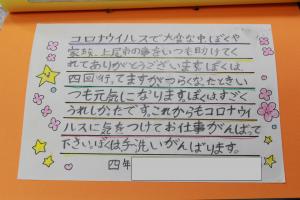 コロナウイルスで大変な中ぼくや
家族、上尾市の事をいつも助けてく
れてありがとうございますぼくは、
四回行ってますがつらくなったときい
つも元気になります。ぼくは、すごく
うれしかったです。これからもコロナウイ
ルスに気をつけてお仕事がんばって
下さいぼくは、手洗いがんばります。
四年